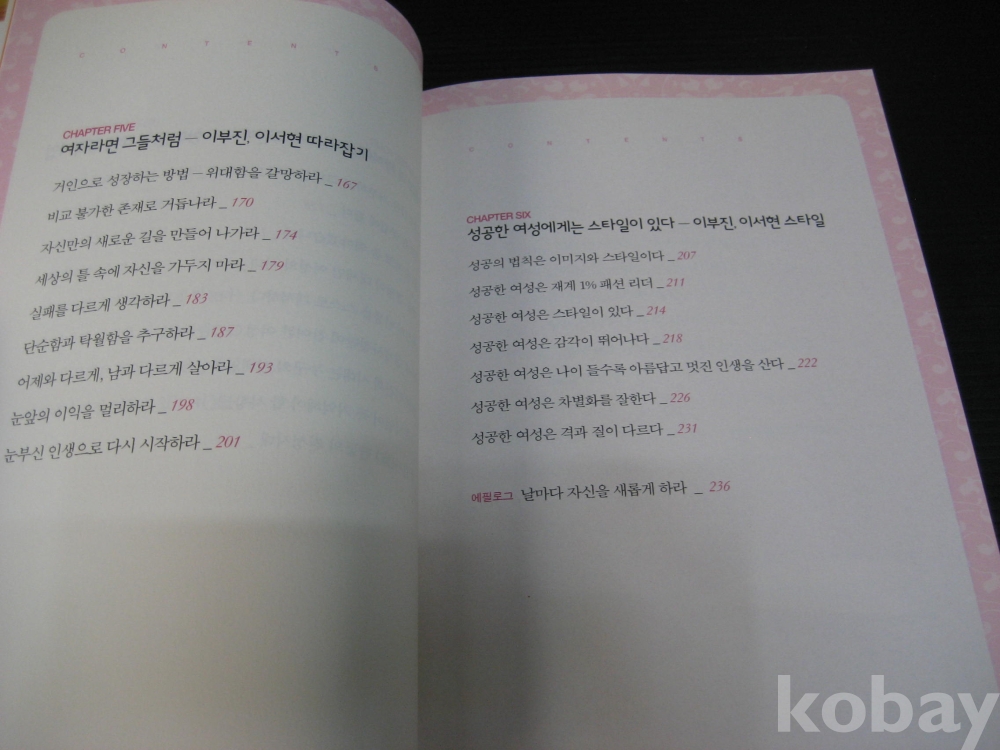 CONTENTS
CHAPTER FIVE
여자라면 그들처럼 – 이부진, 이서현 따라잡기
거인으로 성장하는 방법 – 위대함을 갈망하라 _ 167
비교 불가한 존재로 거듭나라 _ 170
자신만의 새로운 길을 만들어 나가라 _ 174
세상의 틀 속에 자신을 가두지 마라 _ 179
실패를 다르게 생각하라 _ 183
단순함과 탁월함을 추구하라 _ 187
어제와 다르게, 남과 다르게 살아라 _ 193
눈앞의 이익을 멀리하라 _ 198
눈부신 인생으로 다시 시작하라 _ 201
CONTENTS
CHAPTER SIX
성공한 여성에게는 스타일이 있다 – 이부진, 이서현 스타일
성공의 법칙은 이미지와 스타일이다 _ 207
성공한 여성은 재계 1% 패션 리더 _ 211
성공한 여성은 스타일이 있다 _ 214
성공한 여성은 감각이 뛰어나다 _ 218
성공한 여성은 나이 들수록 아름답고 멋진 인생을 산다 _ 222
성공한 여성은 차별화를 잘한다 _ 226
성공한 여성은 격과 질이 다르다 _ 231
에필로그 날마다 자신을 새롭게 하라 _ 236
kobay